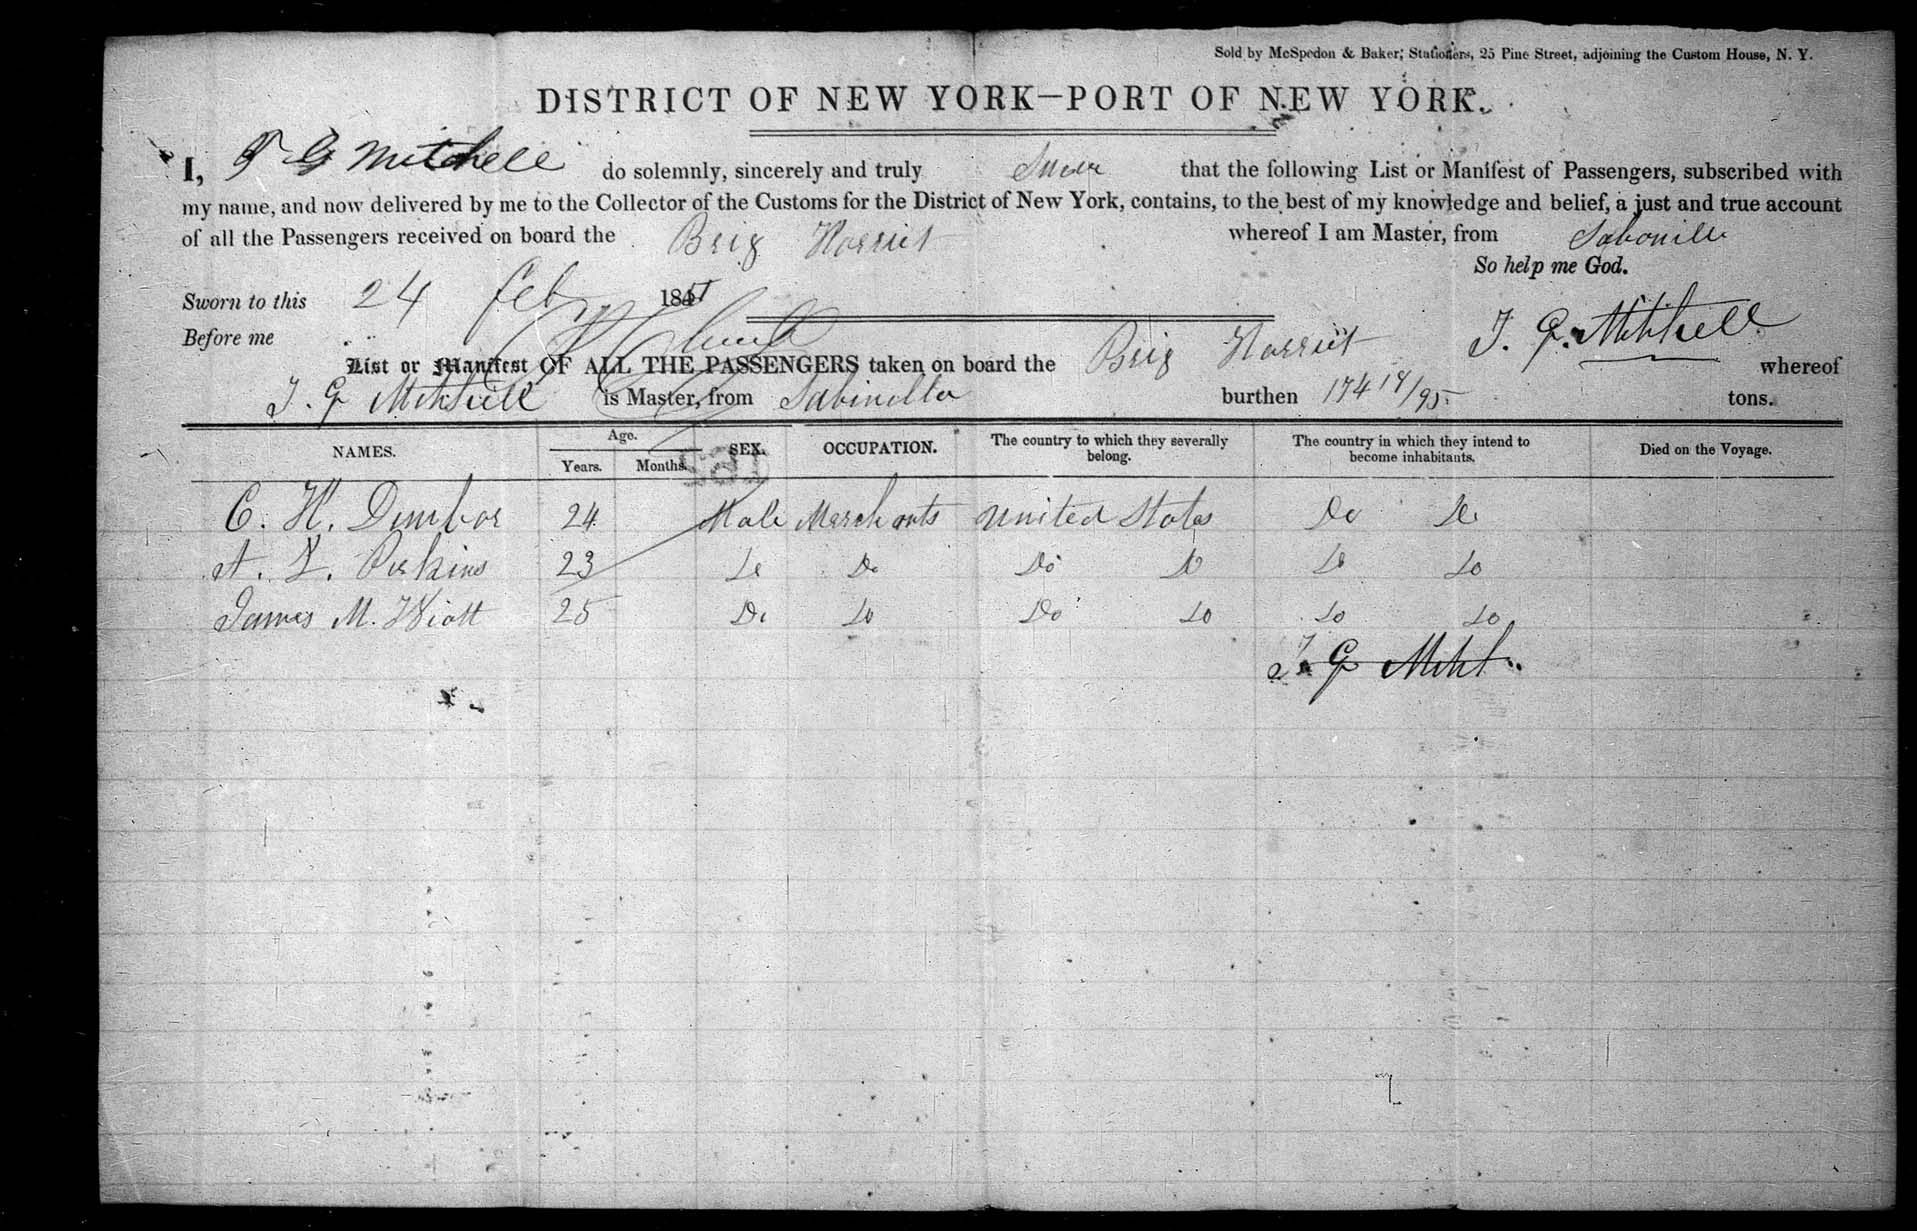 Sold by McSpedon & Baker, Stationers, 25 Pine Street, adjoining the Custom House, N. Y.
DISTRICT OF NEW YORK—PORT OF NEW YORK.
I, T G Mitchell do solemnly, sincerely and truly Swear that the following List or Manifest of Passengers, subscribed with
my name, and now delivered by me to the Collector of the Customs for the District of New York, contains, to the best of my knowledge and belief, a just and true account
of all the Passengers received on board the Brig Harriet whereof I am Master, from
So help me God.
Sworn to this 24 Feb 1851
Before me
T. G. Mitchell
List or Manifest OF ALL THE PASSENGERS taken on board the Brig Harriet whereof
T. G Mitchell is Master, from Sabinilla burthen 174 14/95 tons.
NAMES. Age. Years. Months. SEX. OCCUPATION. The country to which they severally belong. The country in which they intend to become inhabitants. Died on the Voyage.
C. H. Dunbar 24 Male Merchants United States Do Do
A. L. Perkins 23 Do Do Do Do Do Do
James M. Wiatt 25 Do Do Do Do Do Do
T G